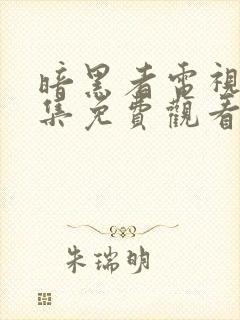 暗黑者電視
集免費觀看
朱瑞明